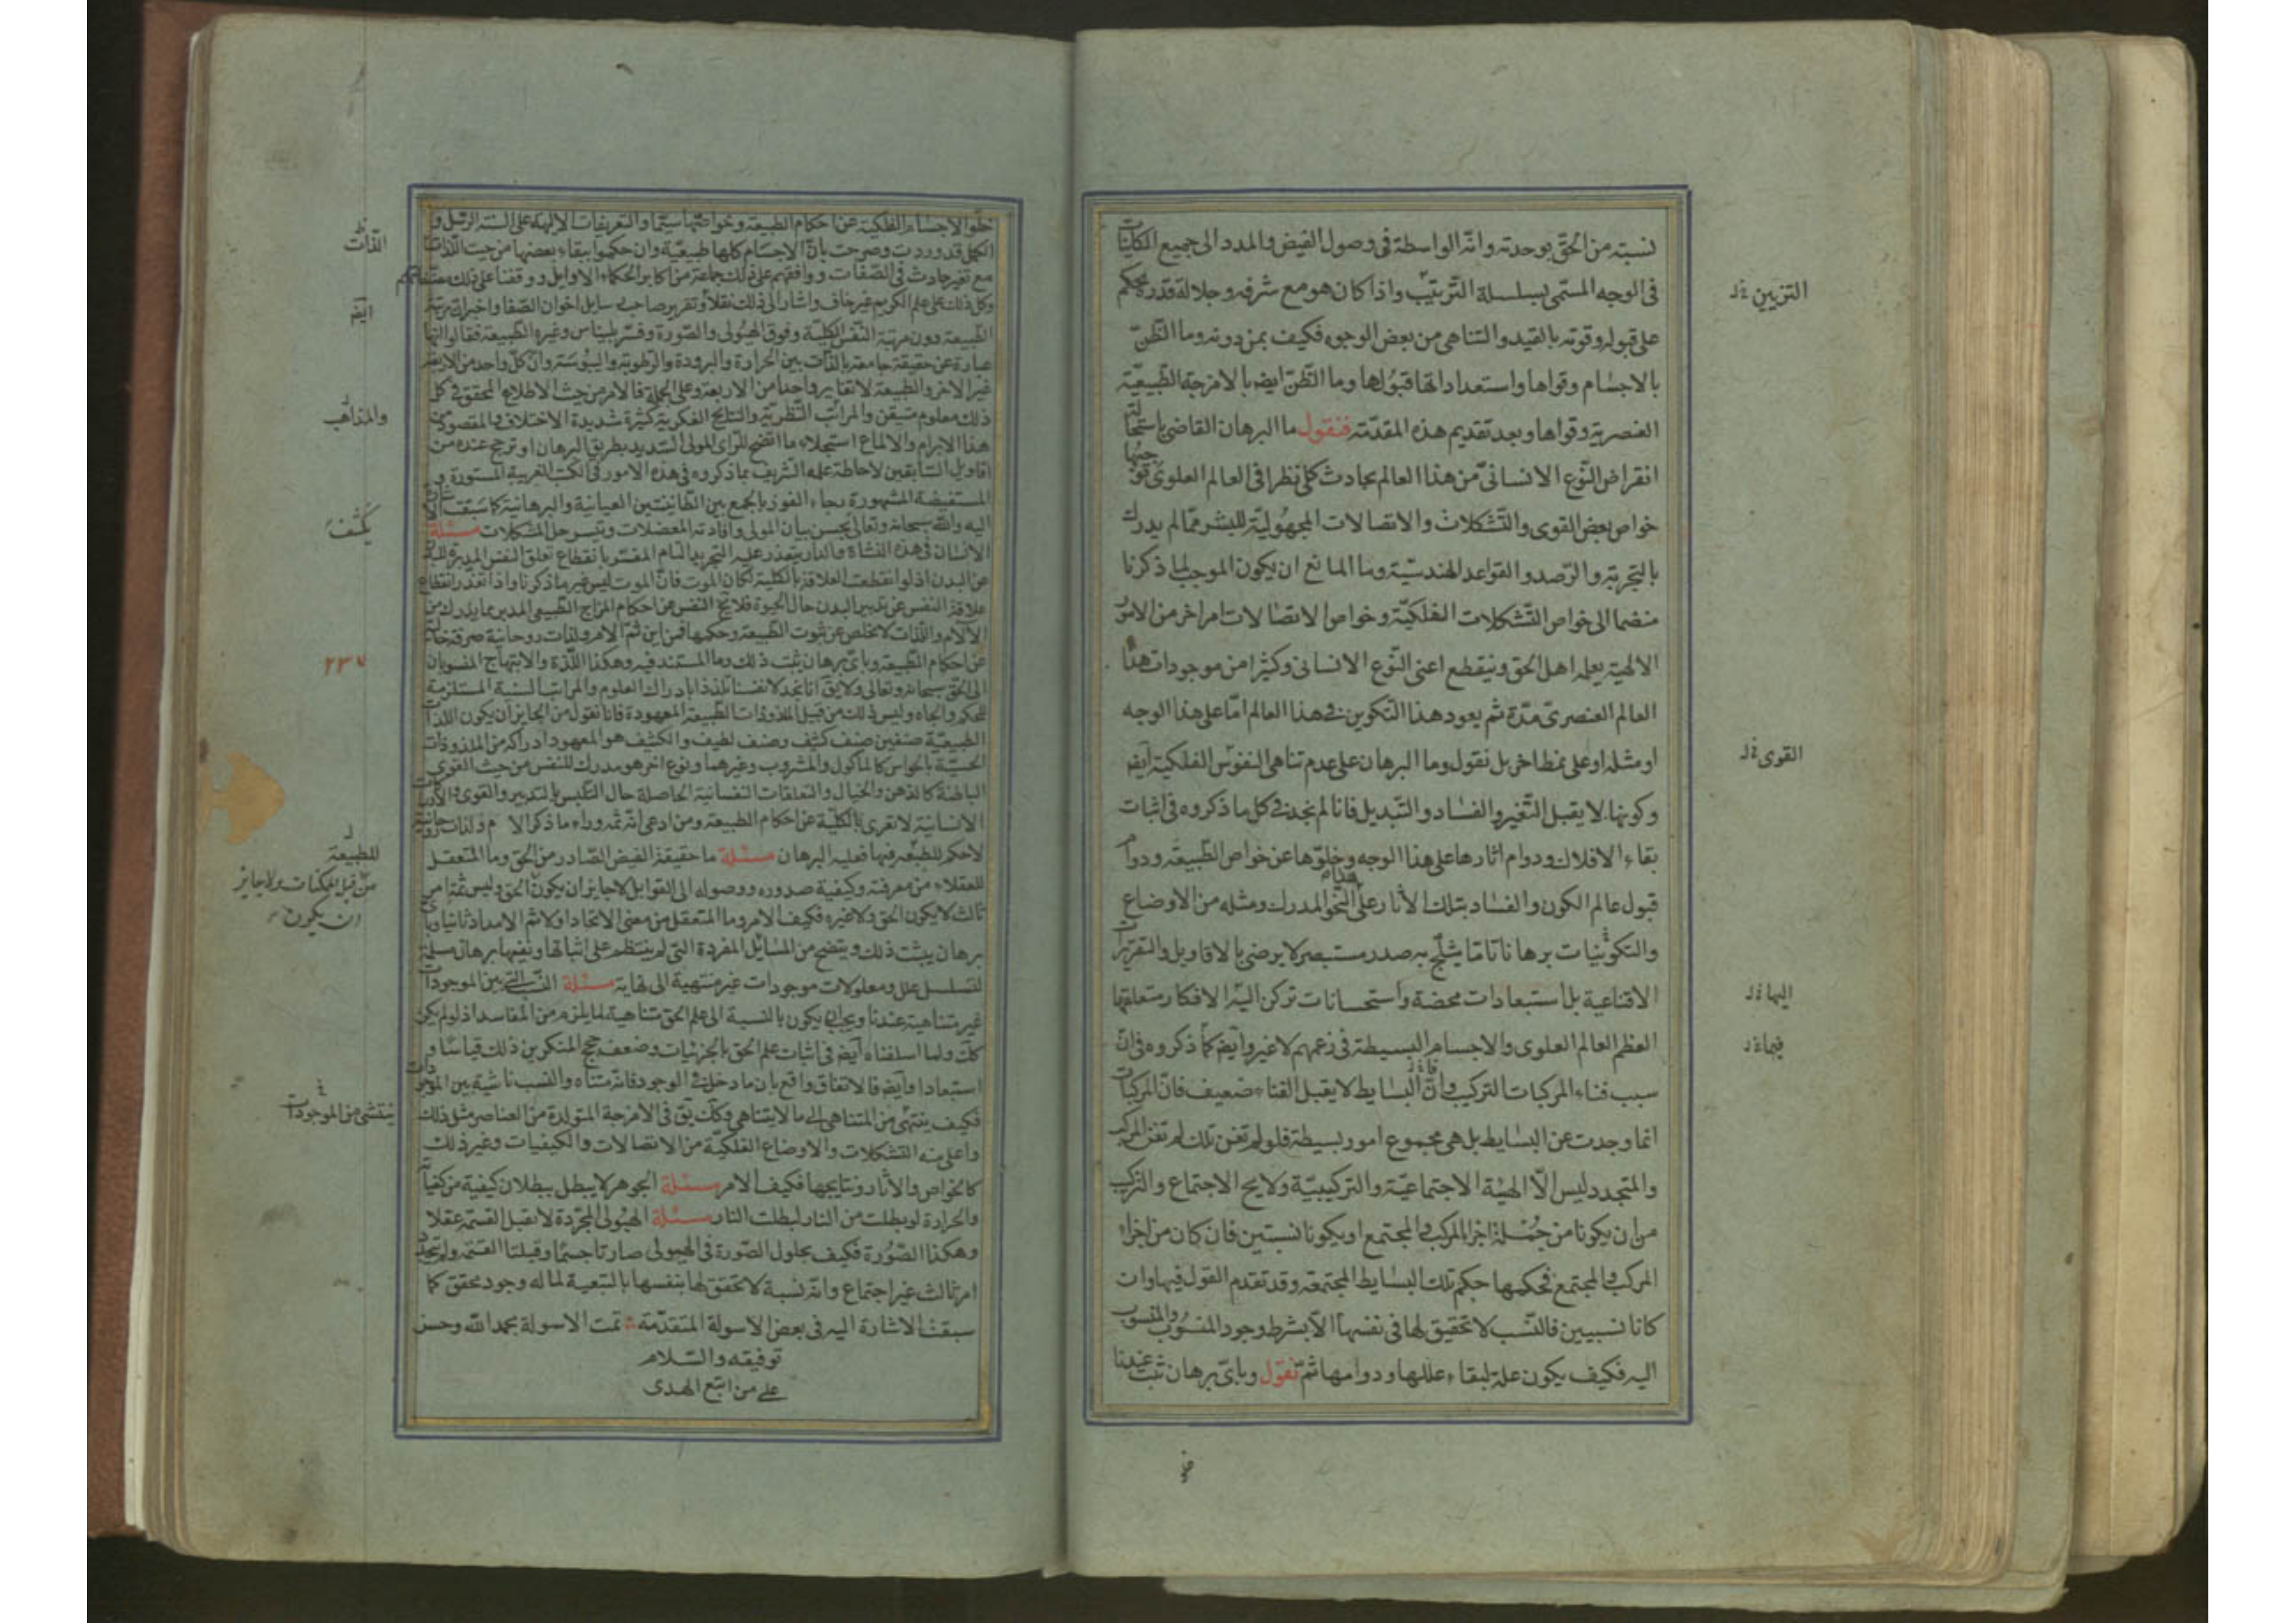 نسبته من الحقّ بوحدته وانّه الواسطة فى وصول الفيض والمدد الى جميع الممكنات
فى الوجه المسمّى بسلسلة التّرتيب واذا كان هو مع شرفه وجلالة قدره يحكم
التزيين
على قبوله وقوته بالقيد والتناهى من بعض الوجوه فكيف بمن دونه وما الظّنّ
بالاجسام وقواها واستعداداتها قبولها وما الظّنّ ايضا بالامزجة الطّبيعيّة
العنصرية وقواها وبعد تقديم هذه المقدّمة فنقول ما البرهان القاضى باستحالة
انقراض النّوع الانسانىّ من هذا العالم بحادث كلى نظرا فى العالم العلوى
خواص بعض القوى والتّشكلات والاتصالات المجهوليّة للبشر ممّا لم يدرك
بالتجربة والرّصد والقواعد الهندسيّة وما المانع ان يكون الموجب لما ذكرنا
منضما الى خواص التّشكلات الفلكيّة وخواص الاتصالات امر اخر من الامور
الالهية يعلمه اهل الحق وينقطع اعنى النّوع الانسانى وكثيرا من موجودات هذا
العالم العنصرىّ مدّة ثم يعود هذا التكوين فى هذا العالم امّا على هذا الوجه
او مثله او على نمط اخر بل نقول وما البرهان على عدم تناهى النفوس الفلكية ايضا
القوى
وكونها لا يقبل التّغير والفساد والتّبديل فانا لم نجد فى كل ما ذكروه فى اثبات
بقاء الافلاك ودوام اثارها على هذا الوجه وخلوّها عن خواص الطّبيعة ودوام
قبول عالم الكون والفساد بتلك الأثار على النّحو المدرك ومثله من الاوضاع
والتكوينيات برهانا تاما يثلج به صدر مستبصر لا يرضى بالاقاويل والتقريرات
الاقناعية بل استبعادات محضة واستحسانات تركن اليها الافكار متعلقها
اليها
العظم العالم العلوى والاجسام البسيطة فى زعمهم لا غير وايضا كما ذكروه فى انّ
فيما
سبب فناء المركبات التركيب وانّ البسايط لا يقبل الفناء ضعيف فانّ المركبات
انما وجدت عن البسايط بل هى مجموع امور بسيطة فلو لم تفن تلك لم تفن المركب
والمتجدد ليس الّا الهيئة الاجتماعيّة والتركيبيّة ولا يح الاجتماع والتركب
من ان يكونا من جملة اجزا المركب والمجتمع او يكونا نسبتين فان كان من اجزاء
المركب والمجتمع فحكمها حكم تلك البسايط المجتمعة وقد تقدم القول فيها وان
كانا نسبيين فالنّسب لا تحقيق لها فى نفسها الّا بشرط وجود المنسوب والمنسوب
اليه فكيف يكون علة لبقاء عللها ودوامها ثمّ نقول وباىّ برهان ثبت عندنا
خلوّ الاجسام الفلكية عن احكام الطبيعة وخواصّها سيّما والتعريفات الالهية على السنة الرسل و
الكمل قد وردت وصرحت بانّ الاجسام كلها طبيعيّة وان حكموا ببقاء بعضها من حيث الذات
الذات
مع تغير حادث فى الصّفات ووافقهم على ذلك جماعة من اكابر الحكماء الاوايل ووقفنا على ذلك
وكل ذلك على علم الكريم غير خاف واشار الى ذلك نقلا وتقرير صاحب رسايل اخوان الصّفا واخبر انّ مرتبة
ايضا
الطّبيعة دون مرتبة النّفس الكليّة وفوق الهيولى والصّورة وفسّر بليناس وغيره الطّبيعة فقالوا انّها
عبارة عن حقيقة جامعة بالذّات بين الحرارة والبرودة والرّطوبة واليبوسة وانّ كلّ واحد من الاربعة
غير الاخر والطّبيعة لا تغاير واحدا من الاربعة وعلى الجملة فالامر من حيث الاطلاع المحقق فى كل
ذلك معلوم متيقن والمراتب النّظرية والنتايج الفكرية كثيرة شديدة الاختلاف والمقصود من
والمذاهب
هذا الابرام والالماع استجلاء ما اتضح للرّاى المولى السّديد بطريق البرهان او ترجح عنده من
اقاويل السّابقين لاحاطة علمه الشّريف بما ذكروه فى هذه الامور فى الكتب الغريبة المستورة و
المستفيضة المشهورة رجاء الفوز بالجمع بين الطّايفتين العيانية والبرهانية كما سبقت الاشارة
اليه والله سبحانه وتعالى بحسن بيان المولى وافادته المعضلات وتيسر حل المشكلات مسئلة
يكشف
الانسان فى هذه النشاة والدار يتعذر عليه التجريد التام المفسّر بانقطاع تعلق النفس المدبرة للبدن
عن البدن اذ لو انقطعت العلاقة بالكلية لكان الموت فانّ الموت ليس غير ما ذكرنا واذا تعذر انقطاع
علاقة النفس عن تدبير البدن حال الحيوة فلا يخ النفس من احكام المزاج الطّبيعى المدبر بما يدرك من
الآلام واللّذات لا تخلص عن شوب الطّبيعة وحكمها فمن اين ثمّ الام ولذات روحانية صرفة خالية
عن احكام الطّبيعة وباىّ برهان ثبت ذلك وما المستند فيه وهكذا اللّذة والابتهاج المنسوبان
٢٣٧
الى الحقّ سبحانه وتعالى ولا يق انا نجد لانفسنا تلذذا بادراك العلوم والمراتب السنية المستلزمة
للحكم والجاه وليس ذلك من قبيل الملذوذات الطّبيعية المعهودة فانا نقول من الجايز ان يكون اللّذات
الطبيعيّة صنفين صنف كثيف وصنف لطيف والكثيف هو المعهود ادراكه من الملذوذات
الحسيّة بالحواس كالمأكول والمشروب وغيرهما ونوع اخر هو مدرك للنفس من حيث القوى
الباطنة كالذهن والخيال والتعلقات النفسانية الحاصلة حال التلبس بالتدبير والقوى
الانسانية لا تعرى بالكليّة عن احكام الطبيعة ومن ادعى انّه ثمّ وراء ما ذكر الام ولذات روحانية
لا حكم للطبيعة فيها فعليه البرهان مسئلة ما حقيقة الفيض الصّادر من الحق وما المتعقل
للطبيعة
للعقلاء من معرفته وكيفية صدوره ووصوله الى القوابل لا جايز ان يكون الحق وليس ثمّة امر
من قبل الممكنات ولا جايز
ان يكون
ثالث لا يكون الحق ولا غيره فكيف الامر وما المتعقل من معنى الاتحاد اولا ثم الامداد ثانيا وباى
برهان يثبت ذلك ويتضح من المسايل المفردة التى لم ينتظم على اثباتها ونفيها برهان مسئلة
لتسلسل علل ومعلولات موجودات غير منتهية الى نهاية مسئلة النّسب التى بين الموجودات
غير متناهية عندنا ويجب ان يكون بالنسبة الى علم الحق متناهية لما يلزم من المفاسد اذ لو لم يكن
كك ولما اسلفناه ايضا فى اثبات علم الحق بالجزئيات وضعف حجج المنكرين ذلك قياسا و
استبعادا وايضا فالاتفاق واقع بان ما دخل فى الوجود فانه متناه والنسب ناشية بين الموجودات
فكيف ينتهى من المتناهى الى ما لا يتناهى وكك يق فى الامزجة المتولدة من العناصر مثل ذلك
ينتشى من الموجودات
واعلى منه التشكلات والاوضاع الفلكيّة من الاتصالات والكيفيات وغير ذلك
كالخواص والأثار ونتايجها فكيف الامر مسئلة الجوهر لا يبطل ببطلان كيفية من كيفياته
والحرارة لو بطلت من النار لبطلت النار مسئلة الهيولى المجرّدة لا تقبل القسمة عقلا
وهكذا الصّورة فكيف بحلول الصّورة فى الهيولى صارتا جسمًا وقبلتا القسمة ولم يتجدد
امر ثالث غير اجتماع وانه نسبة لا تحقق لها بنفسها بالتبعية لما له وجود محقق كما
سبقت الاشارة اليه فى بعض الاسولة المتقدّمة تمت الاسولة بحمد الله وحسن
توفيقه والسّلام
على من اتبع الهدى